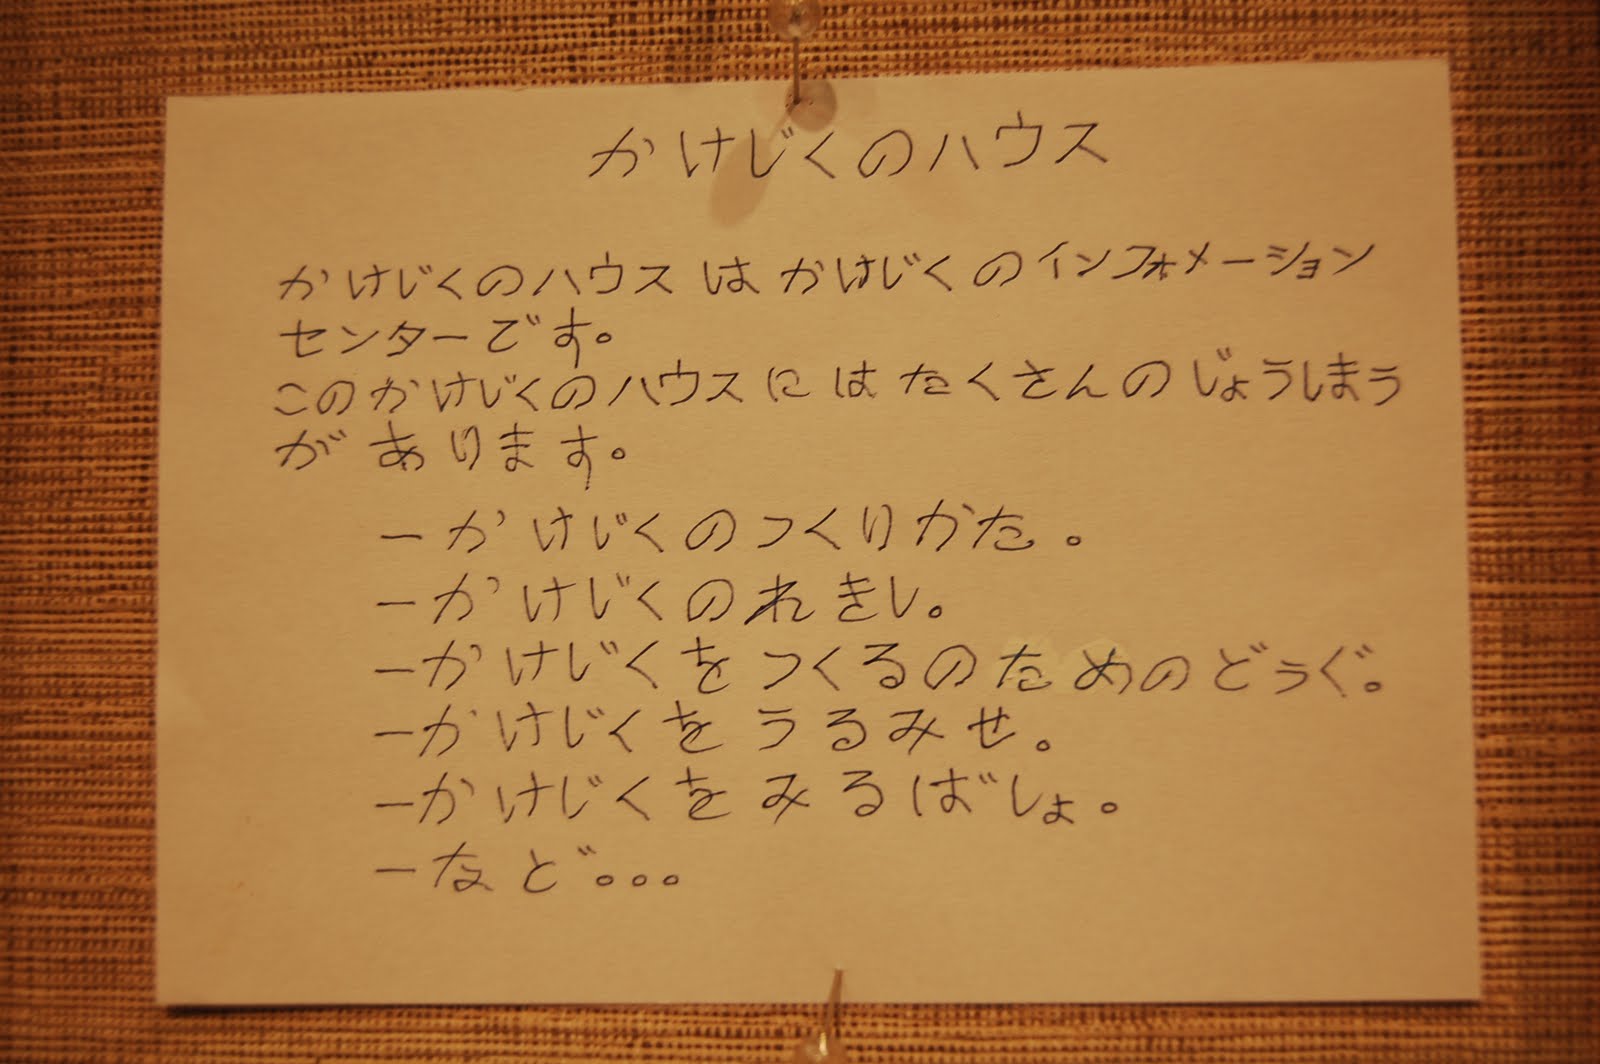 かけじくのハウス
かけじくのハウスはかけじくのインフォメーション
センターです。
このかけじくのハウスにはたくさんのじょうしまう
があります。
ーかけじくのつくりかた。
ーかけじくのれきし。
ーかけじくをつくるのためのどうぐ。
ーかけじくをうるみせ。
ーかけじくをみるばしょ。
ーなど。。。